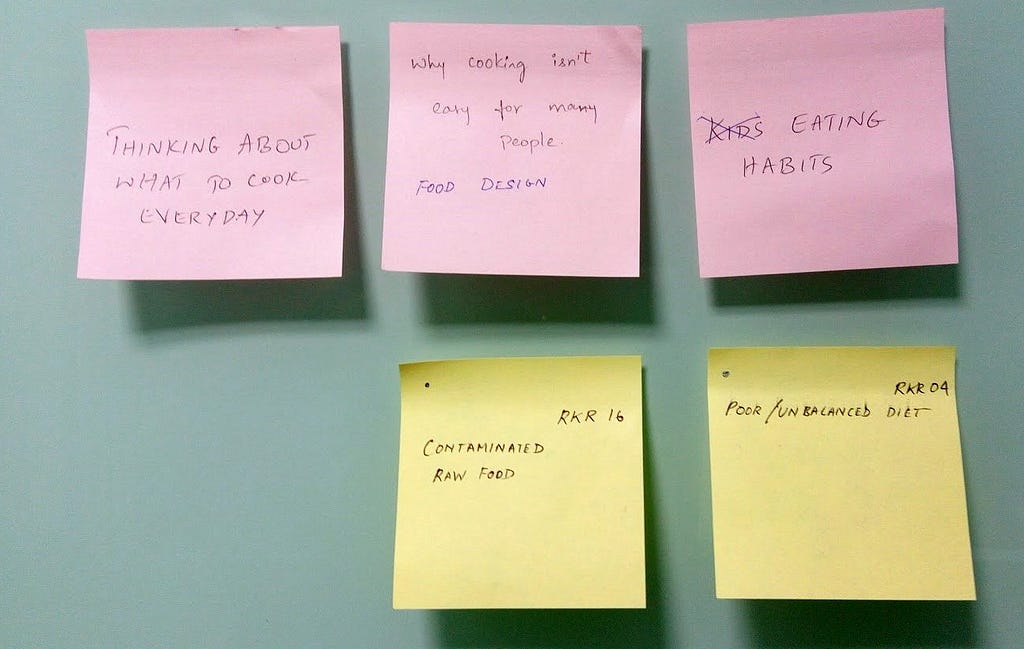 THINKING ABOUT
WHAT TO COOK
EVERYDAY
Why cooking isn't
easy for many
people.
FOOD DESIGN
KIDS EATING
HABITS
RKR 16
CONTAMINATED
RAW FOOD
RKR 04
POOR/UNBALANCED DIET